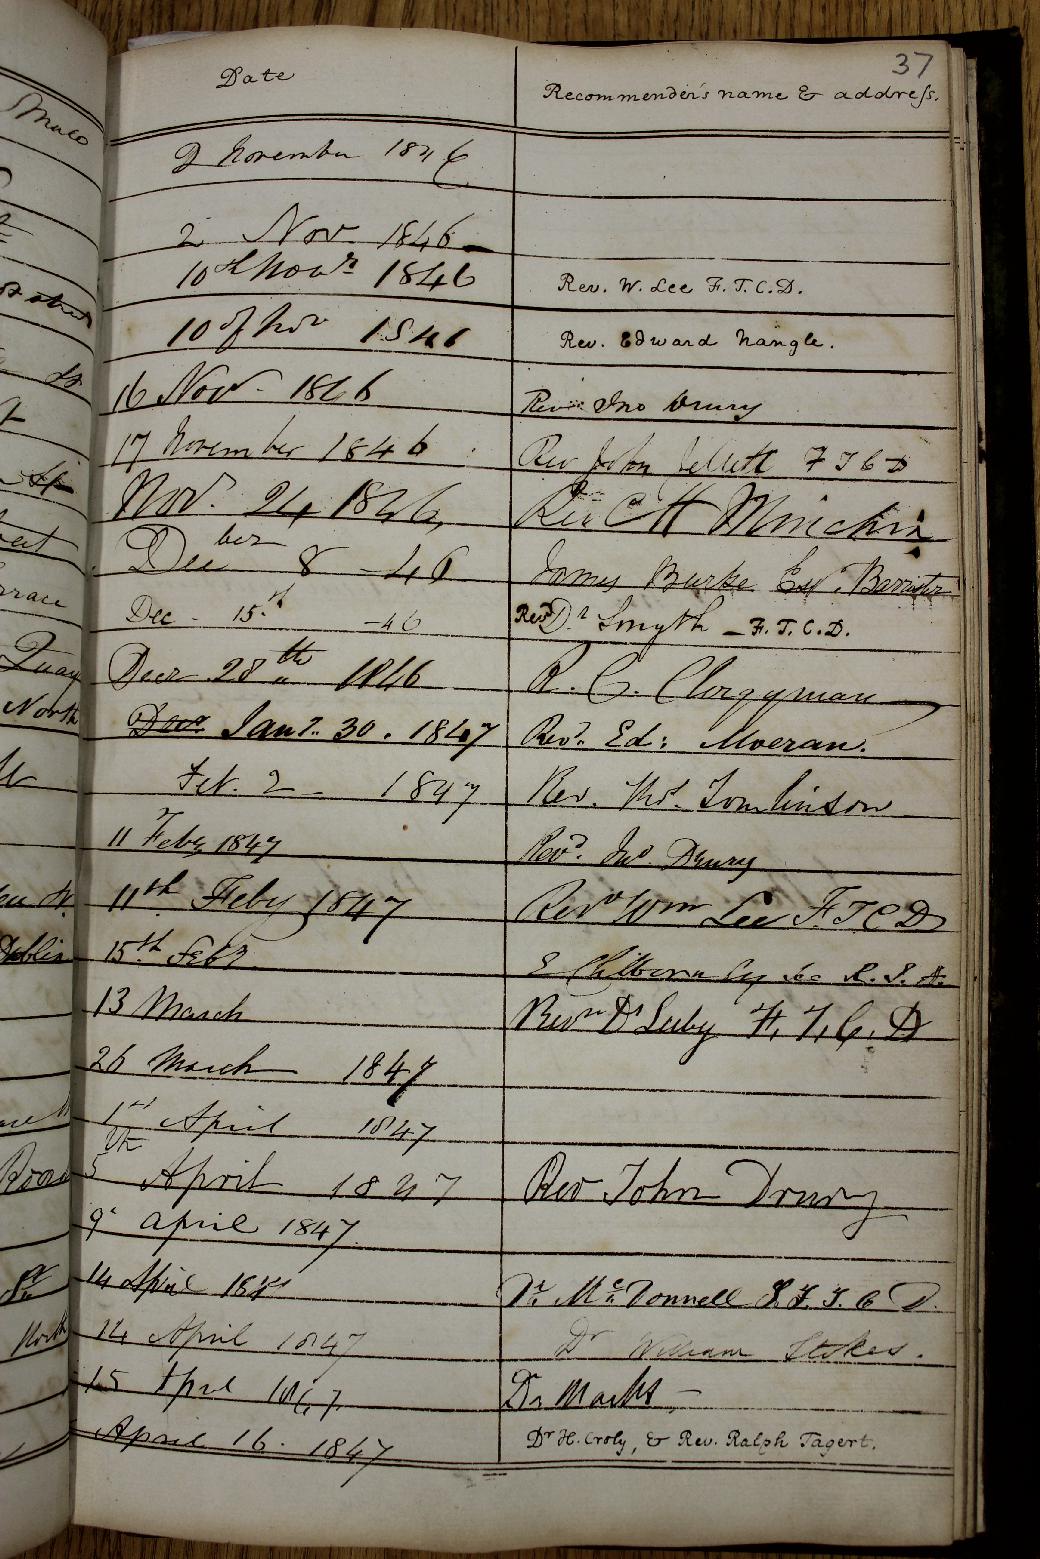 37
Date Recommender's name & address.
2 November 1846
2 Nov 1846
10th Novr 1846 Rev. W. Lee F.T.C.D.
10 of Nov 1846 Rev. Edward Nangle.
16 Nov 1846 Revd Jno Drury
17 November 1846 Rev John Jellett F T C D
Novr. 24, 1846, Rev C H Minchin
Decber 8 -46 James Burke Esq. Barrister
Dec - 15th -46 Revd Dr Smyth - F.T.C.D.
Decr 28th 1846 R. C. Clergyman
Decr Jany. 30. 1847 Revd. Ed: Moeran.
Feb. 2 - 1847 Rev. Thos. Tomlinson
11 Feby 1847 Revd. Jno Drury
11th Feby 1847 Revd Wm Lee F T C D
15th Feby
13 March Revd Dr Luby F. T. C. D
26 March 1847
1st April 1847
5th April 1847 Rev John Drury
9 April 1847
14 April 1847 Dr. McDonnell S. F. T. C D.
14 April 1847 Dr William Stokes.
15 April 1847 Dr Marks -
April 16. 1847 Dr H. Croly, & Rev. Ralph Tagert.
Male
Quay
North
Dublin
Road